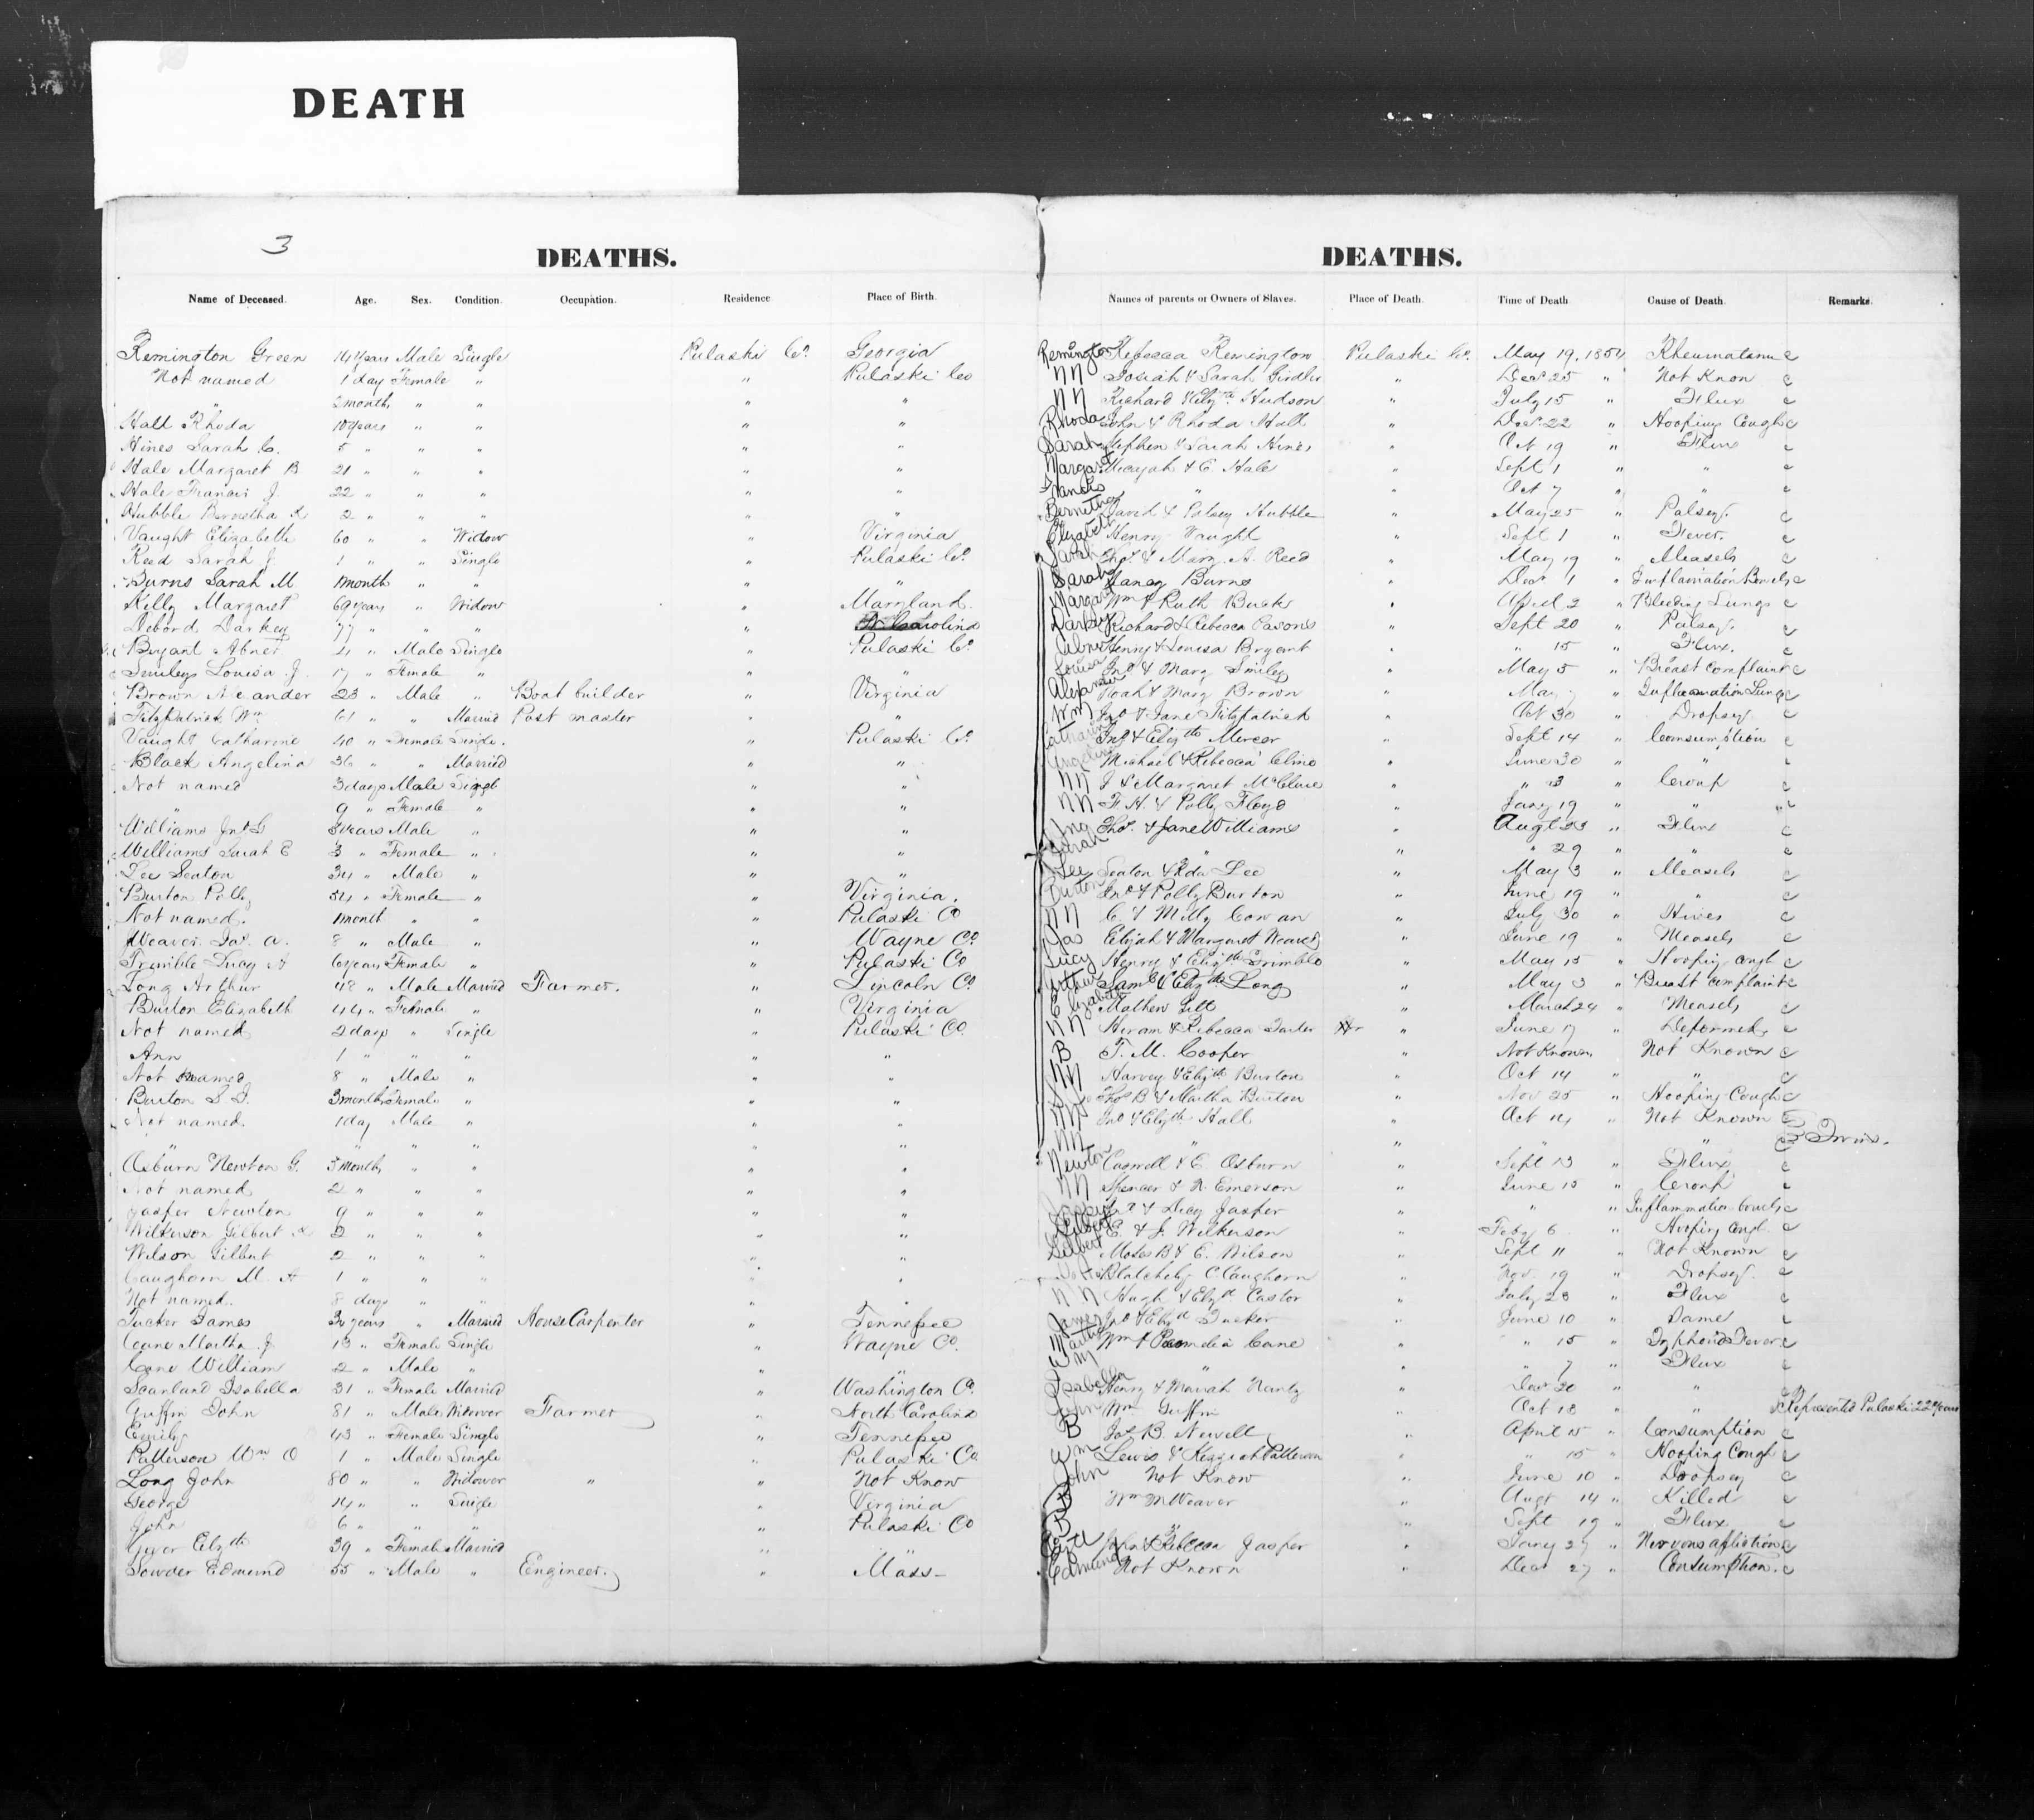 DEATH
3
DEATHS.
Name of Deceased. Age. Sex. Condition. Occupation. Residence Place of Birth.
Remington Green 14 years Male Single Pulaski Co. Georgia
Not named 1 day Female " " Pulaski Co
" 2 month " " " "
Hall Rhoda 10 years " " " "
Hines Sarah C. 5 " " " " "
Hale Margaret B 21 " " " " "
Hale Francis J. 22 " " " " "
Hubble Bernetha 2 " " " " "
Vaught Elizabeth 60 " " Widow " Virginia
Reed Sarah J. 1 " " Single " Pulaski Co.
Burns Sarah M 1 month " " " "
Kelly Margaret 69 years " Widow " Maryland.
Debord Darkey 77 " " " " N. Carolina
Bryant Abner 4 " Male Single " Pulaski Co.
Smiley Louisa J. 17 " Female " " "
Brown Alexander 23 " Male " Boat builder " Virginia
Fitzpatrick Wm 61 " " Married Post master " "
Vaught Catharine 40 " Female Single. " Pulaski Co.
Black Angelina 36 " " Married " "
Not named 3 days Male Singl " "
" 9 " Female " " "
Williams Jno 3 years Male " " "
Williams Sarah E 3 " Female " " "
Lee Seaton 34 " Male " " "
Burton Polly 54 " Female " " Virginia.
Not named. 1 month " " " Pulaski Co
Weaver Jas. A. 8 " Male " " Wayne Co.
Trimble Lucy A 6 years Female " " Pulaski Co
Long Arthur 48 " Male Married Farmer. " Lincoln Co.
Burton Elizabeth 44 " Female " " Virginia
Not named 2 days " Single " Pulaski Co.
Ann 1 " " " " "
Not named 8 " Male " " "
Burton S. 3 months Female " " "
Not named 1 day Male " " "
" " " " " "
Osburn Newton G. 5 months " " " "
Not named 2 " " " " "
Jasper Newton 9 " " " " "
Wilkerson Gilbert 2 " " " " "
Wilson Gilbert 2 " " " " "
Caughorn M. A 1 " " " " "
Not named. 8 days " " " "
Tucker James years " Married House Carpenter " Tennessee
Cane Martha J. 13 " Female Single " Wayne Co.
Cane William 2 " Male " " "
Scanland Isabella 31 " Female Married " Washington Co.
Griffin John 81 " Male Widower Farmer " North Carolina
Emily 43 " Female Single " Tennessee
Patterson Wm O 1 " Male Single " Pulaski Co
Long John 80 " " Widower " " Not Know
George 14 " " Single " Virginia
John 6 " " " " Pulaski Co
Elzth 39 " Female Married " "
Sowder Edmund 55 " Male " Engineer. " Mass-
DEATHS.
Names of parents or Owners of Slaves. Place of Death. Time of Death Cause of Death. Remarks.
Remington Rebecca Remington Pulaski Co. May 19, 1854 Rheumatism c
NN Josiah & Sarah Girdler " Decr 25 " Not Knon c
NN Richard & Hudson " July 15 " Flux c
Rhoda John & Rhoda Hall " Decr 22 " Hooping Cough c
Sarah Stephen & Sarah Hines " Oct 19 " Flux c
Margaret Micajah & E. Hale " Sept 1 " " c
Francis " " Oct 7 " " c
Bernetha David & Patsey Hubble " May 25 " Palsey. c
Elizabeth Henry Vaught " Sept 1 " Fever. c
Sarah Thos. & Mary A. Reed " May 19 " Measels c
Sarah Nancy Burns " Decr 1 " Inflamation Bowels c
Margaret Wm & Ruth Buck " April 2 " Bleeding Lungs c
Darkey Richard & Rebecca Parsons " Sept 20 " Palsey. c
Abner Henry & Louisa Bryant " " 15 " Flux. c
Louisa Jno & Mary Smiley " May 5 " Breast Complaint c
Alexander Noah & Mary Brown " May " Inflamation Lungs c
Wm Jno & Jane Fitzpatrick " Oct 30 " Dropsey c
Catharine Jno & Elizth Mercer " Sept 14 " Consumption c
Angelina Michail & Rebecca Cline " June 30 " " c
NN J & Margaret McClure " " 3 " Croup c
NN F. H. & Polly Floyd " Jany 19 " " c
Jno Thos. & Jane Williams " Augt 23 " Flux c
Sarah " " " 29 " " c
Lee Seaton & Lee " May 3 " Measels c
Burton Jno & Polly Burton " June 19 " " c
NN C. & Milly Cowan " July 30 " Hives c
Jas Elijah & Margaret Weaver " June 19 " Measels c
Lucy Henry & Elizth Trimble " May 15 " Hooping Cough c
Arthur Saml & Elizth Long " May 3 " Breast Complaint c
Elizabeth Mathew " March 24 " Measels c
NN Hiram & Rebecca " June 17 " Deformed. c
B T. M. Cooper " Not Known Not Known c
NN Harvey & Elizth Burton " Oct 14 " " c
Thos B & Martha Burton " Nov 25 " Hooping Cough c
NN Jno & Elizth Hall " Oct 14 " Not Known c
NN " " " " c Twins.
Newton Caswell & E. Osburn " Sept 13 " Flux c
NN Spencer & N. Emerson " June 15 " Croup c
& Lucy Jasper " " " Inflammation bowels c
Gilbert E. & J. Wilkerson " Feby 6 " Hooping Cough c
Gilbert Moses B & E. Wilson " Sept 11 " Not Known c
Blatchely C Caughorn " Nov. 19 " Dropsey. c
NN Hugh & Elzth Castor " July 28 " Flux c
James Jno & Elizth Tucker " June 10 " Same c
Martha Wm & Pamelia Cane " " 15 " Typhoid Fever c
Wm " " " 7 " Flux c
Isabella Henry & Mariah Nantz " Decr 20 " " c
John Wm Griffin " Oct 18 " " c Represented Pulaski 22 years
B Jas B. Newell " April 15 " Consumption c
Wm Lewis & Keggiah Patterson " " 15 " Hooping Cough c
John Not Know " June 10 " Dropsey c
B Wm M Weaver " Augt 14 " Killed c
B " " Sept 19 " Flux c
John & Rebecca Jasper " Jany 27 " Nervous affliction c
Edmund Not Known " Decr 27 " Consumption. c